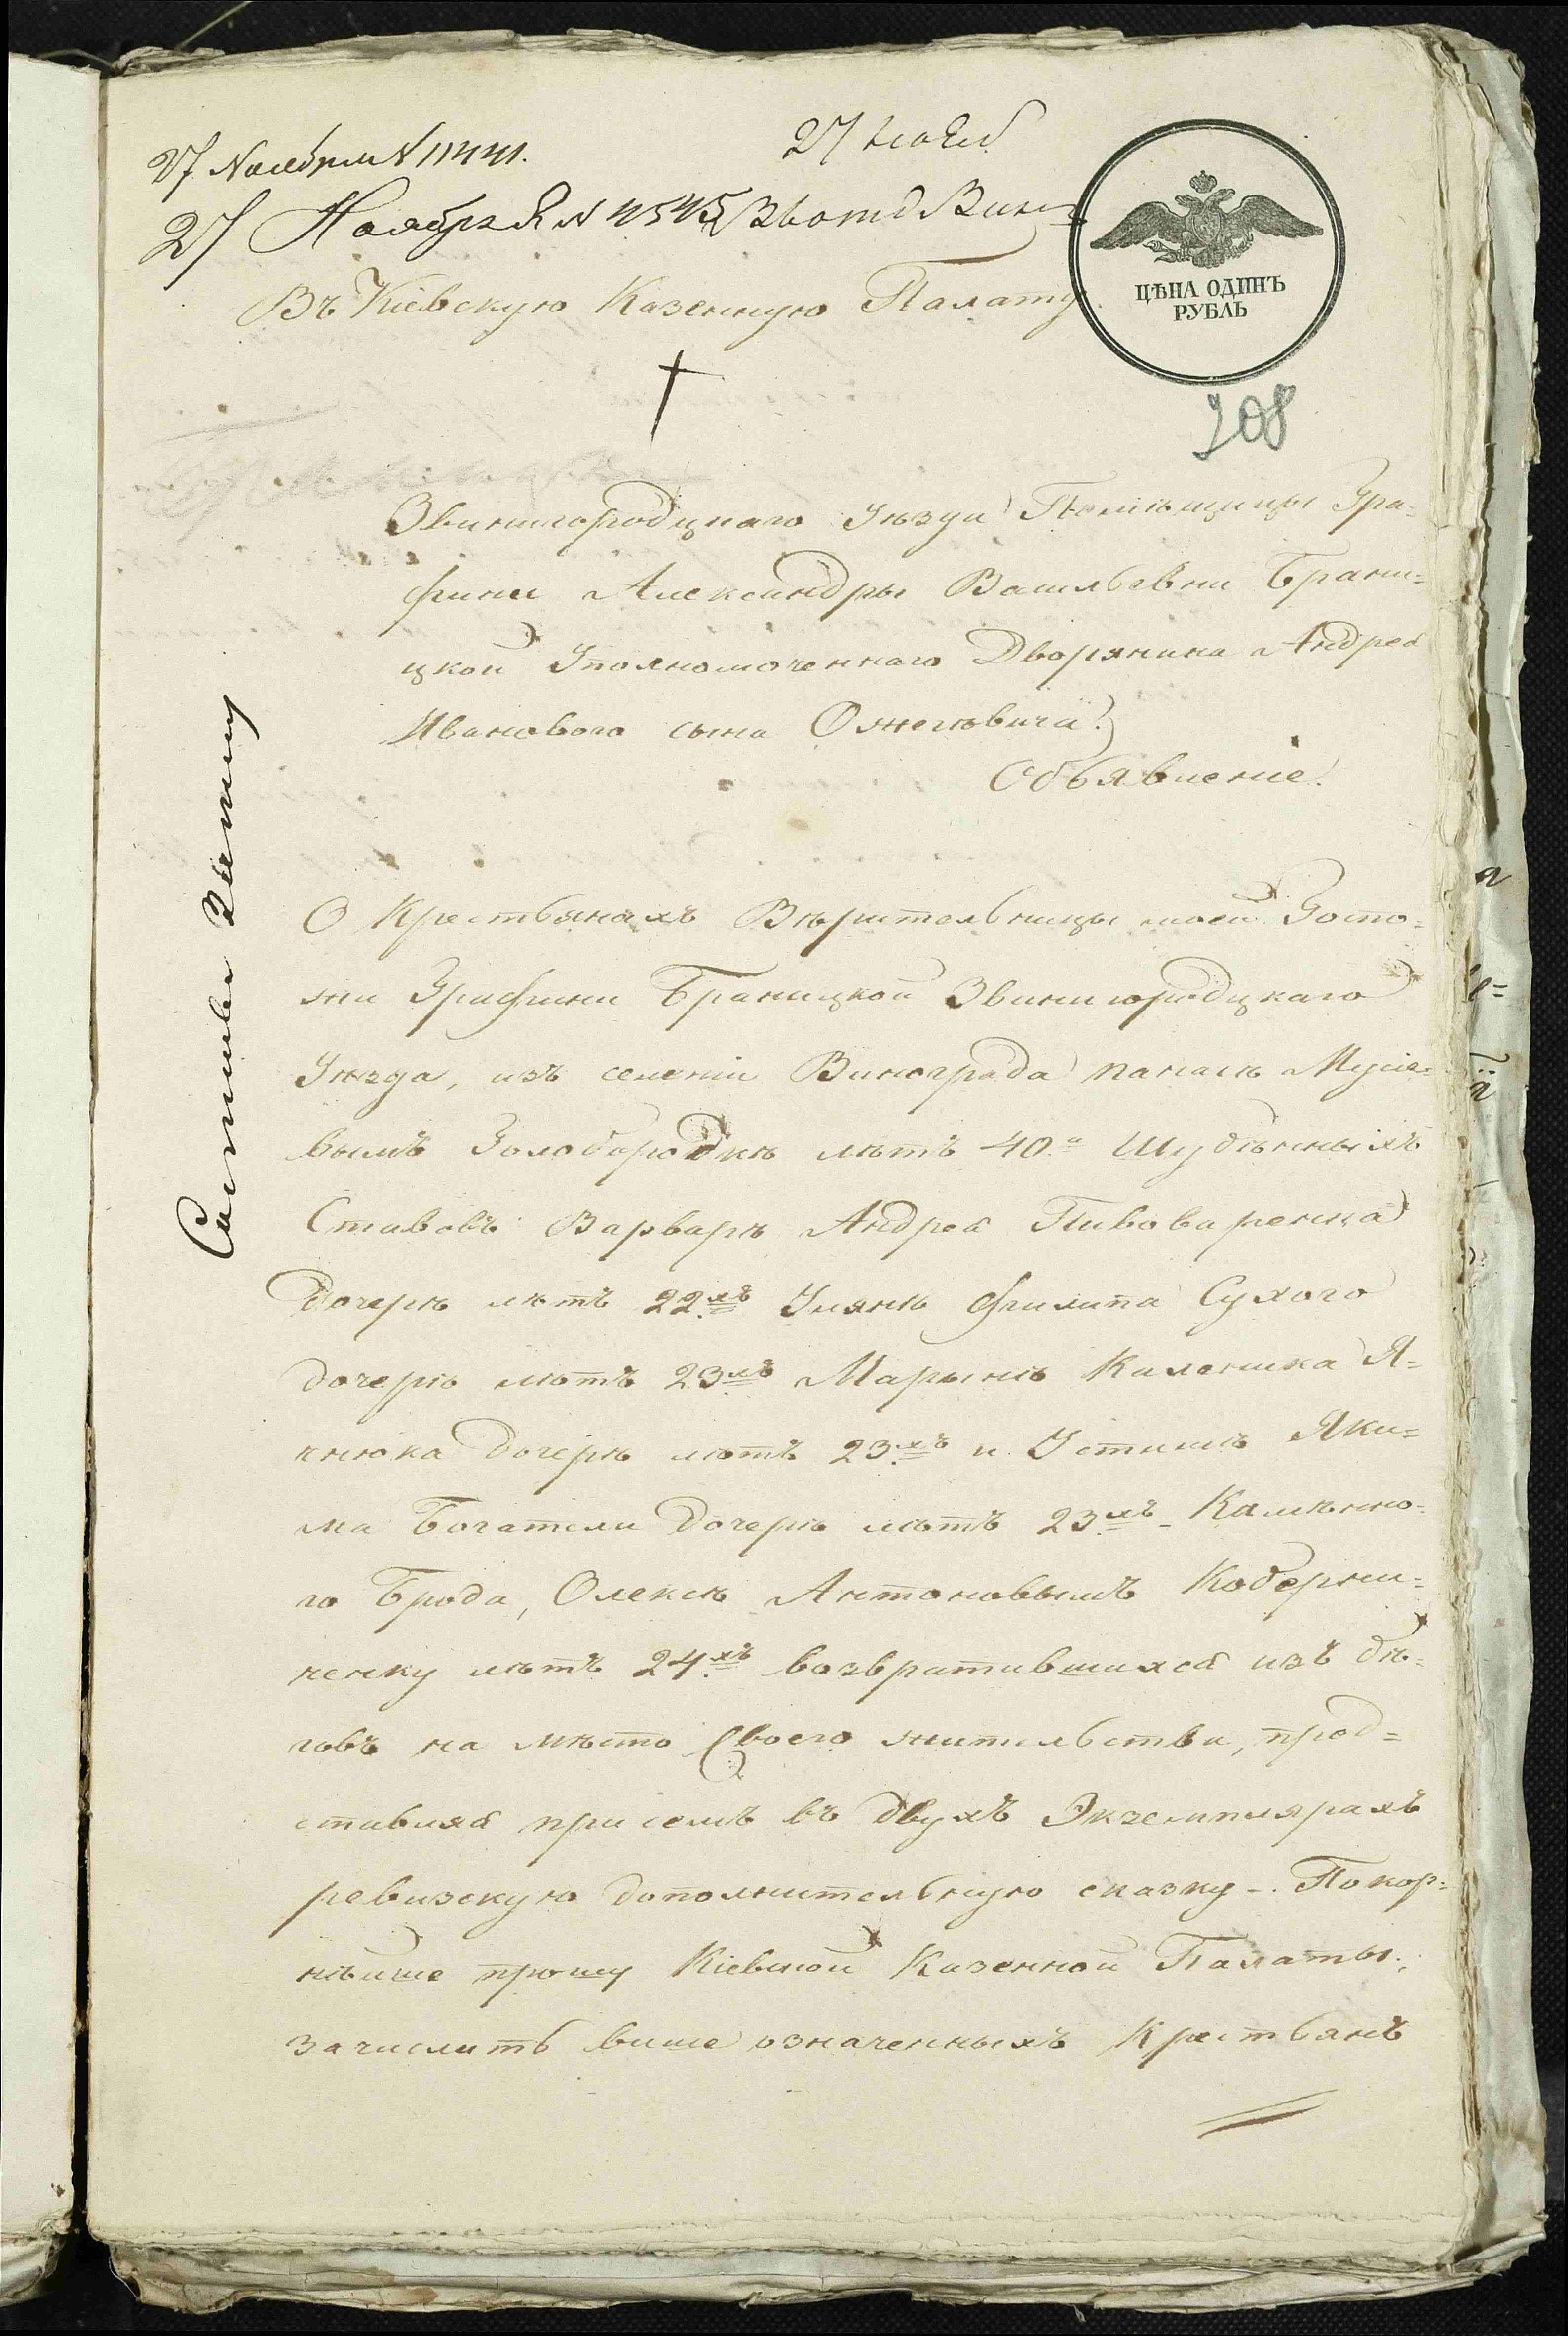 27 Ноября N 11441.
27 Нояб
27 Ноября N 4545
Въ Кіевскую Казенную Палату.
ЦѢНА ОДИНЪ
РУБЛЬ
208
Звинигородцкаго Уѣзда Помѣщицы Гра=
фини Александры Васильевни Брани=
цкой Уполномоченнаго Дворянина Андрея
Иванового сына Онжеговича
Объявленіе.
О Крестьянахъ Вѣрительницы моей Госпо=
жи Графини Браницкой Звинигородцкаго
Уѣзда, изъ селеніи Винограда Панасѣ Мусіе=
вымъ Голобородкѣ лѣтъ 40.а Шубѣнныхъ
Ставовъ Варварѣ Андрея Пивоваренка
дочерѣ лѣтъ 22.хъ Улянѣ Филипа Сухого
дочерѣ лѣтъ 23.хъ Марынѣ Каленика Я=
нюка дочерѣ лѣтъ 23.хъ и Устинѣ Яки=
ма Богатели дочерѣ лѣтъ 23.хъ Камѣнно=
го Брода, Олексѣ Антоновымъ Кобернi=
ченку лѣтъ 24.хъ возвратившихся изъ бѣ=
говъ на мѣсто Своего жительства, пред=
ставляя при семъ въ двухъ Экземплярахъ
ревизскую дополнительную сказку -. Покор=
нѣише прошу Кіевской Казенной Палаты,
зачислить више означенныхъ Крестьянъ